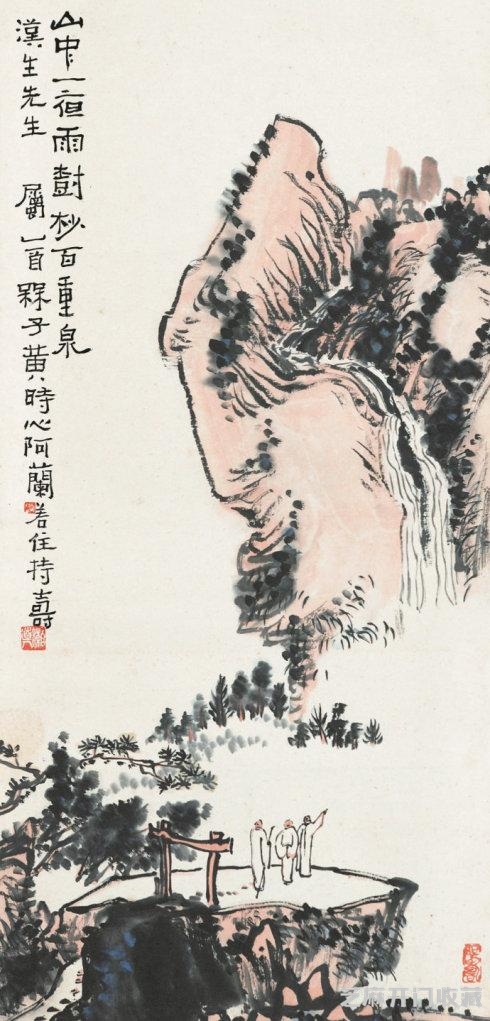 山中一夜雨樹杪百重泉
漢生先生 屬 槑子黃時心阿蘭若住持壽
开门收藏